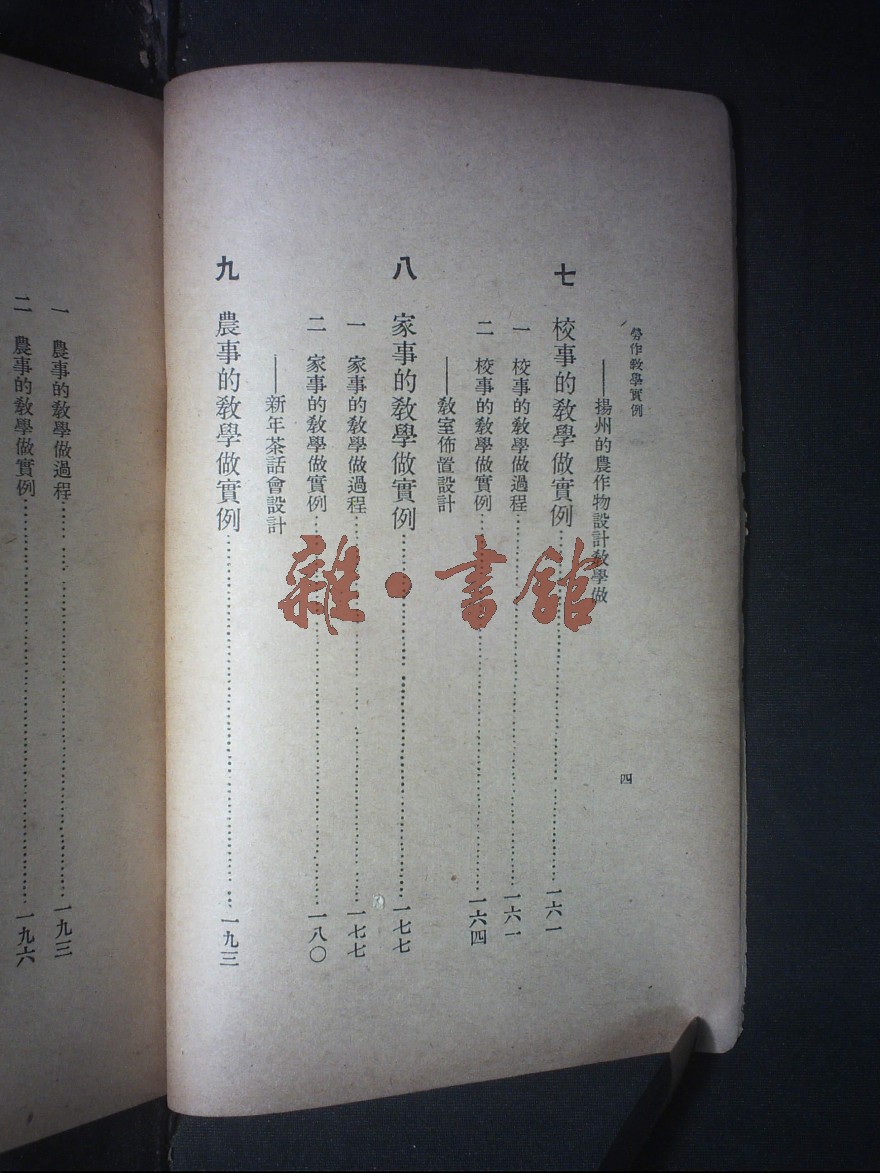 勞作教學實例
四
——揚州的農作物設計教學做
七　校事的教學做實例……一六一
一　校事的教學做過程……一六一
二　校事的教學做實例……一六四
——教室佈置設計
八　家事的教學做實例……一七七
一　家事的教學做過程……一七七
二　家事的教學做實例……一八〇
——新年茶話會設計
九　農事的教學做實例……一九三
一　農事的教學做過程……一九三
二　農事的教學做實例……一九六
雜·書館